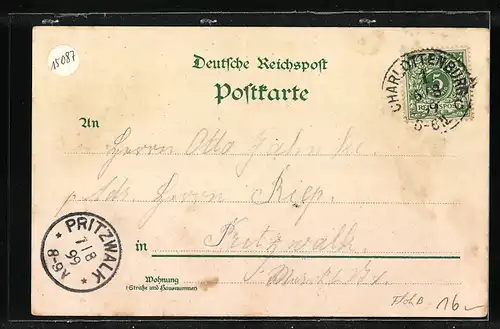 15087
Deutsche Reichspost
Postkarte
CHARLOTTENBURG
5
REICHSPOST
An
Herrn Otto Jahnke.
p. Adr. Herrn Kiep.
in Pritzwalk
PRITZWALK
7/8
99
8-9V
Wohnung
(Straße und Hausnummer)
16-